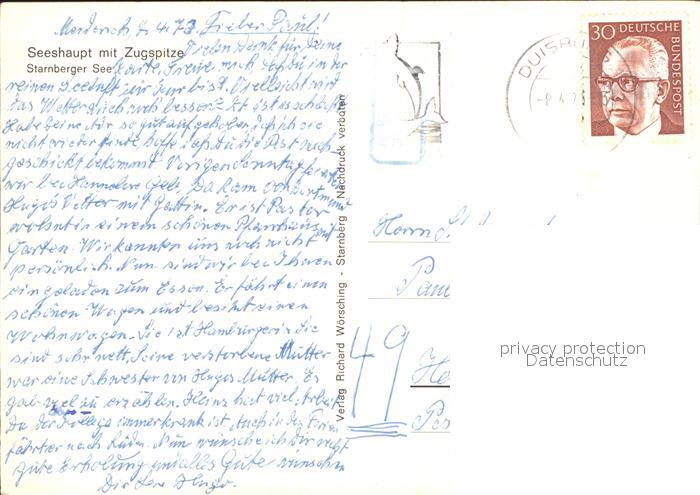 Lieber Paul!
Seeshaupt mit Zugspitze
Starnberger See
Vielen Dank für Deine
Karte. Freue mich daß du in der
reinen zur Kur bist. Vielleicht wird
das Wetter doch noch besser. Es ist so schlecht
Habe Deine so gut aufgehoben daß ich sie
nicht wieder finde daß du die Post nach-
geschickt bekommst. Vorigen Sonntag
wir bei Hannelore Da kam von Dortmund
Hugos Vetter mit Gattin. Er ist Pastor
wohnt in einem schönen Pfarrhaus mit
Garten. Wir kannten uns noch nicht
persönlich. Nun sind wir bei Ihnen
eingeladen zum Essen. Er fährt einen
schönen Wagen und besitzt einen
Wohnwagen. Sie ist Hamburgerin die
sind sehr nett. Seine verstorbene Mutter
war eine Schwester von Hugos Mutter. Es
gab viel zu erzählen. Heinz hat viel Arbeit
da der Kollege immer krank ist. Auch in den Ferien
fährt er nach Nun wünsche ich Dir recht
gute Erholung und alles Gute wünschen
Dir Hugo.
Verlag Richard Wörsching - Starnberg - Nachdruck verboten
DUISBURG
30 DEUTSCHE
BUNDESPOST
Herrn
49
privacy protection
Datenschutz